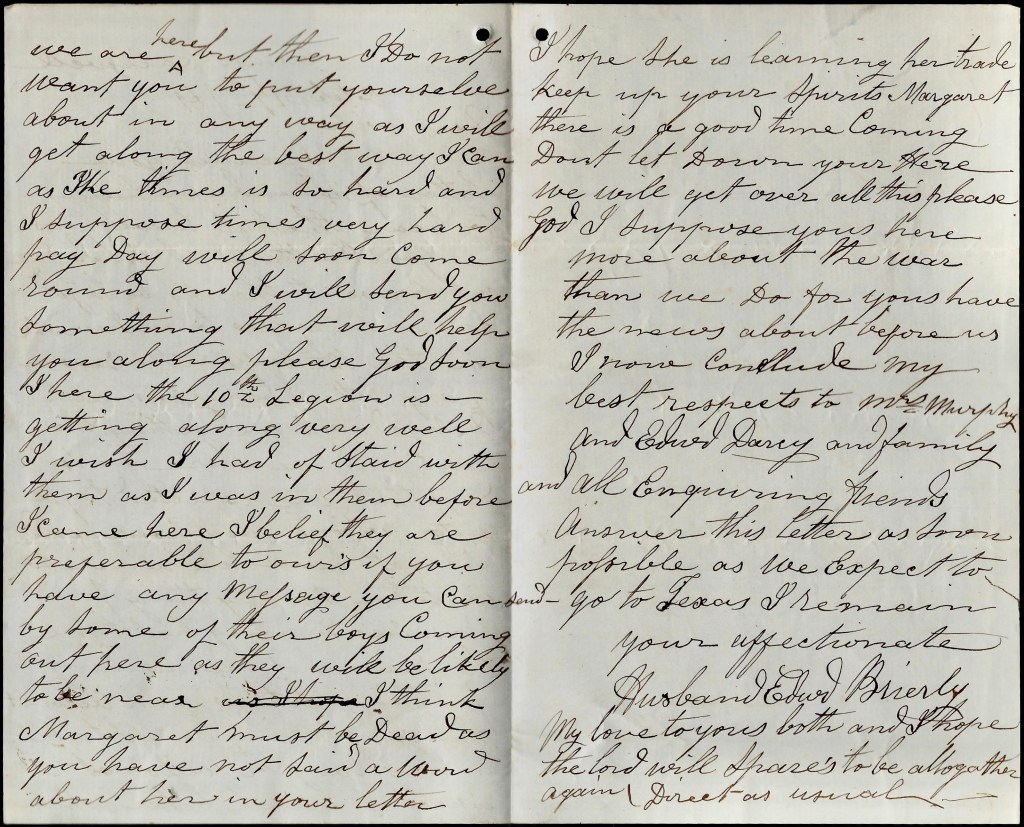 we are here but then I Do not
want you to put yourselve
about in any way as I will
get along the best way I can
as the times is so hard and
I suppose times very hard
pay Day will soon Come
round and I will send you
something that will help
you along please God soon
I here the 10th Legion is —
getting along very well
I wish I had of staid with
them as I was in them before
I came here I belief they are
preferable to owrs if you
have any Message you Can send —
by some of their boys Coming
out here as they will be likely
to be near us I hope I think
Margaret must be Dead as
you have not said a word
about her in your letter
I hope she is learning her trade
keep up your spirits Margaret
there is a good time Coming
Dont let Down your Here
we will get over all this please
God I suppose yous here
more about the war
than we Do for yous have
the news about before us
I now Conclude my
best respects to Mrs Murphy
and Edwd Darcy and family
and all Enquiring friends
Answer this letter as soon
possible as we Expect to
go to Texas I remain
your affectionate
Husband Edwd Brierly
My love to yous both and I hope
the lord will spare's to be altogather
again Direct as usual —